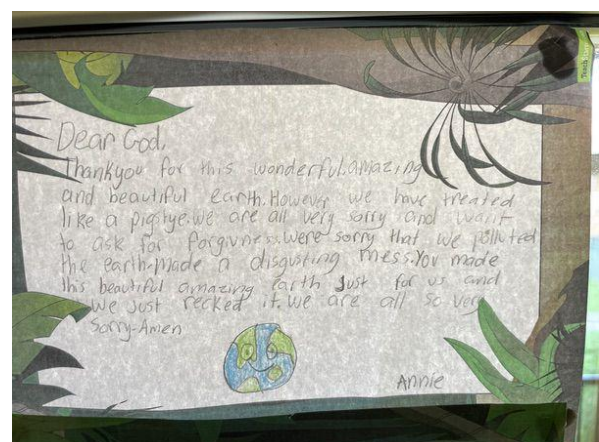 Dear God,
Thankyou for this wonderful,amazing
and beautiful earth.However we have treated
like a pigstye.we are all very sorry and want
to ask for forgivness.were sorry that we polluted
the earth.Made a disgusting mess.You made
this beautiful amazing earth Just for us and
we just recked it.we are all so very
Sorry-Amen
Annie